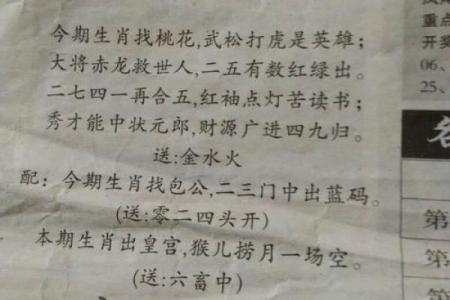 今期生肖找桃花,武松打虎是英雄;
大将赤龙救世人,二五有数红绿出。
二七四一再合五,红袖点灯苦读书;
秀才能中状元郎,财源广进四九归。
送:金水火
配:今期生肖找包公,二三门中出蓝码。
(送:零二四头开)
本期生肖出皇宫,猴儿捞月一场空。
(送:六畜中)
重点
开奖
06、
25、
第
第
第